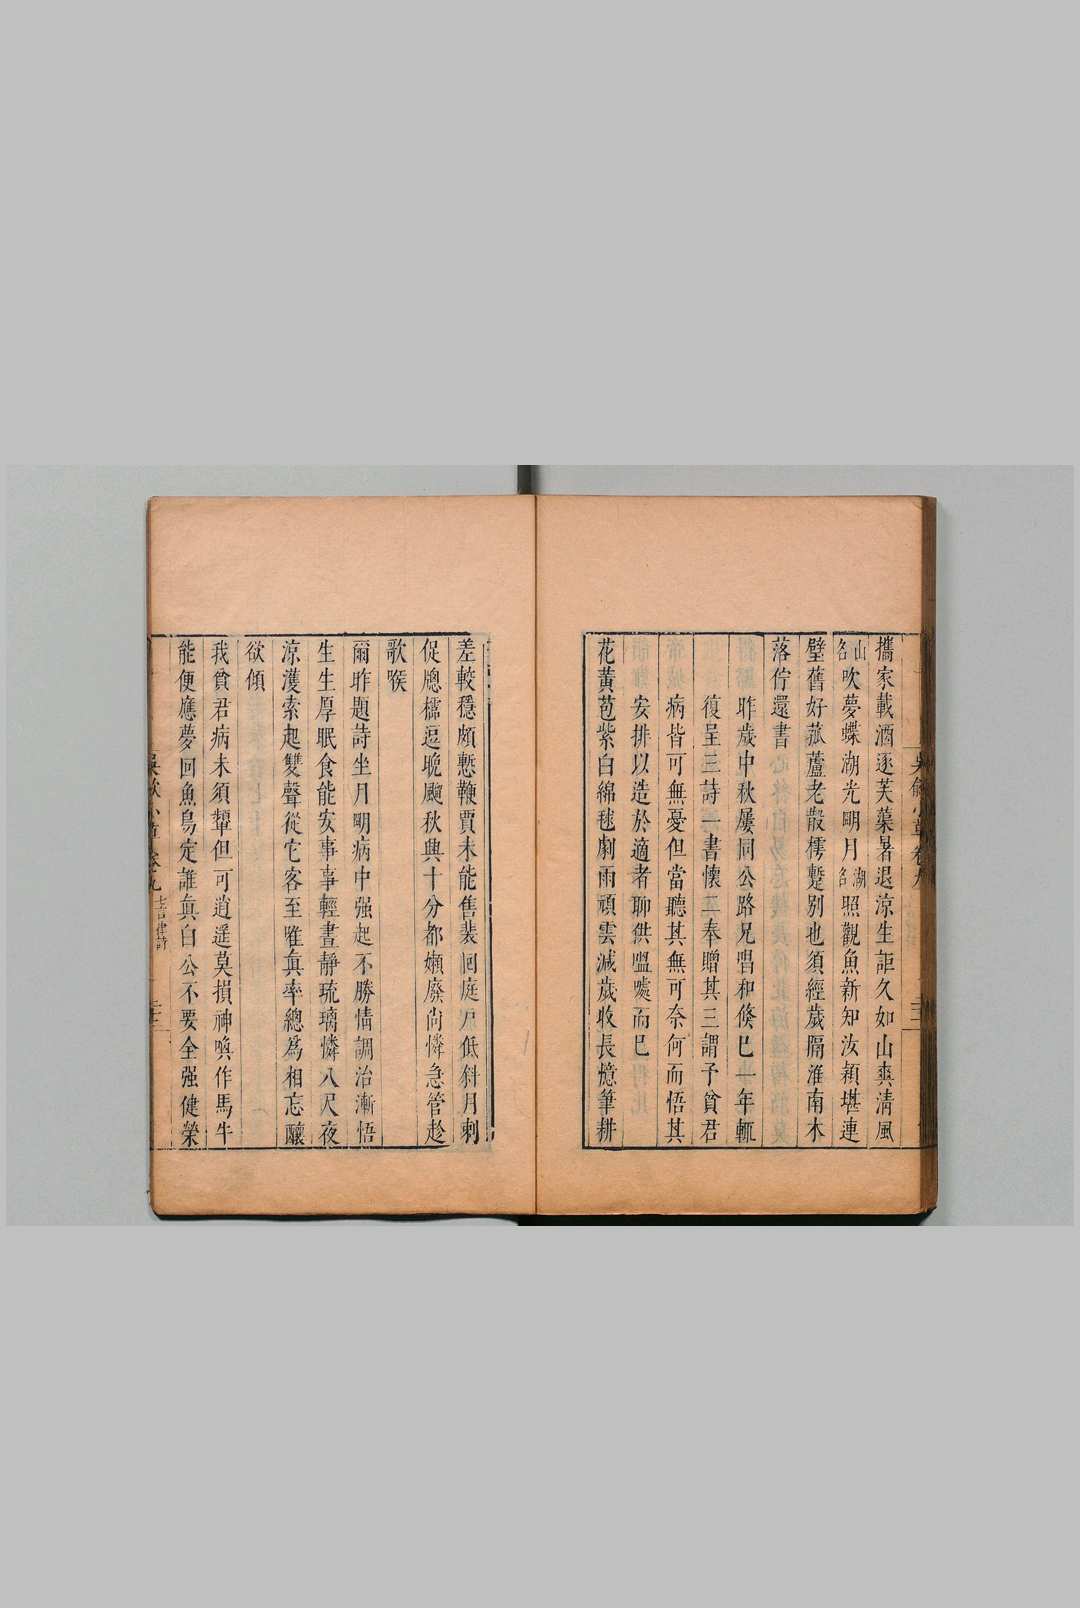 攜家載酒逐芙蕖暑退涼生詎久如山爽清風
山名吹夢蝶湖光明月湖名照觀魚新知汝潁堪連
璧舊好菰蘆老散樗蹔别也須經歲隔淮南木
落佇還書
昨歲中秋屢同公路兄唱和倏已一年輒
復呈三詩一書懷二奉贈其三謂予貧君
病皆可無憂但當聽其無可奈何而悟其
安排以造於適者聊供嗢噱而已
花黃苞紫白綿毬劇雨頑雲減歲收長憶筆耕
差較穩頗慙鞭賈未能售裴回庭戶低斜月剌
促牎櫺逗晚颸秋興十分都嬾廢尚憐急管趁
歌喉
爾昨題詩坐月明病中强起不勝情調治漸悟
生生厚眠食能安事事輕晝靜琉璃憐八尺夜
涼濩索起雙聲從它客至唯真率總爲相忘釀
欲傾
我貧君病未須顰但可逍遥莫損神喚作馬牛
能便應夢回魚鳥定誰真白公不要全强健榮
卷九
七言律詩